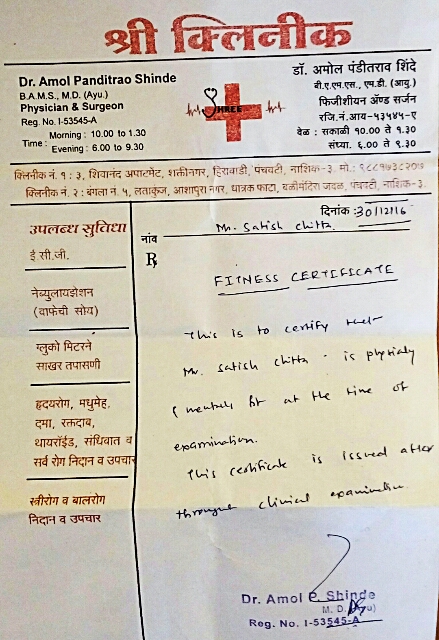 श्री क्लिनीक
Dr. Amol Panditrao Shinde
B.A.M.S., M.D. (Ayu.)
Physician & Surgeon
Reg. No. I-53545-A
Time : Morning : 10.00 to 1.30
Evening : 6.00 to 9.30
SHREE
डॉ. अमोल पंडीतराव शिंदे
बी.ए.एम.एस., एम.डी. (आयु.)
फिजीशीयन अ‍ॅण्ड सर्जन
रजि.नं.आय-५३५४५-ए
वेळ : सकाळी १०.०० ते १.३०
संध्या. ६.०० ते ९.३०
क्लिनीक नं. १ : ३, शिवानंद अपाटमेंट, शक्तीनगर, हिरावाडी, पंचवटी, नाशिक-३. मो.: ९८८१७३८२०७
क्लिनीक नं. २ : बंगला नं. ५, लताकुंज, आशापुरा नगर, धात्रक फाटा, बळीमंदिरा जवळ, पंचवटी, नाशिक-३.
दिनांक : 30/12/16
नांव Mr. Satish Chitta.
℞
FITNESS CERTIFICATE
This is to certify that
Mr. Satish Chitta - is physicaly
& mentaly fit at the time of
examination.
This certificate is issued after
through clinical examination.
उपलब्ध सुविधा
ई.सी.जी.
नेब्युलायझेशन
(वाफेची सोय)
ग्लुको मिटरने
साखर तपासणी
हृदयरोग, मधुमेह,
दमा, रक्तदाब,
थायरॉईड, संधिवात व
सर्व रोग निदान व उपचार
स्त्रीरोग व बालरोग
निदान व उपचार
Dr. Amol P. Shinde
M. D. (Ayu)
Reg. No. I-53545-A